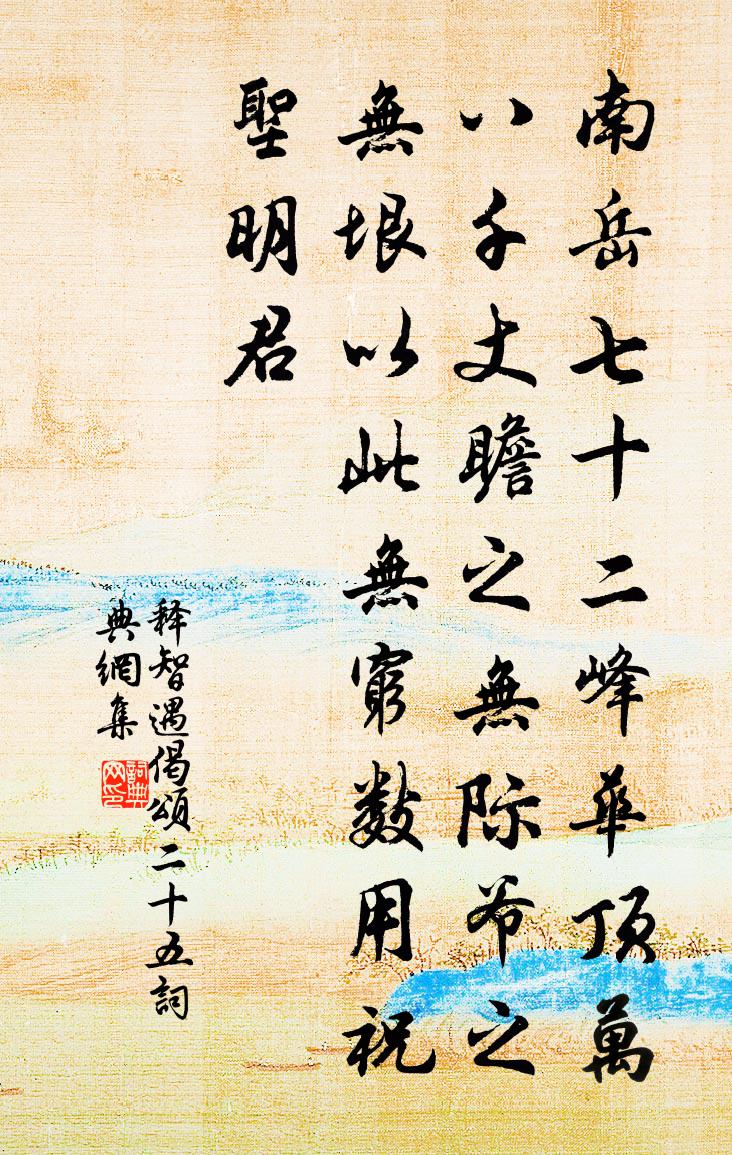 南岳七十二峰華頂萬
八千丈瞻之無际爷之
無垠以此無窮數用祝
聖明君
释智遇偈頌二十五詞
典網集
詞典
网印